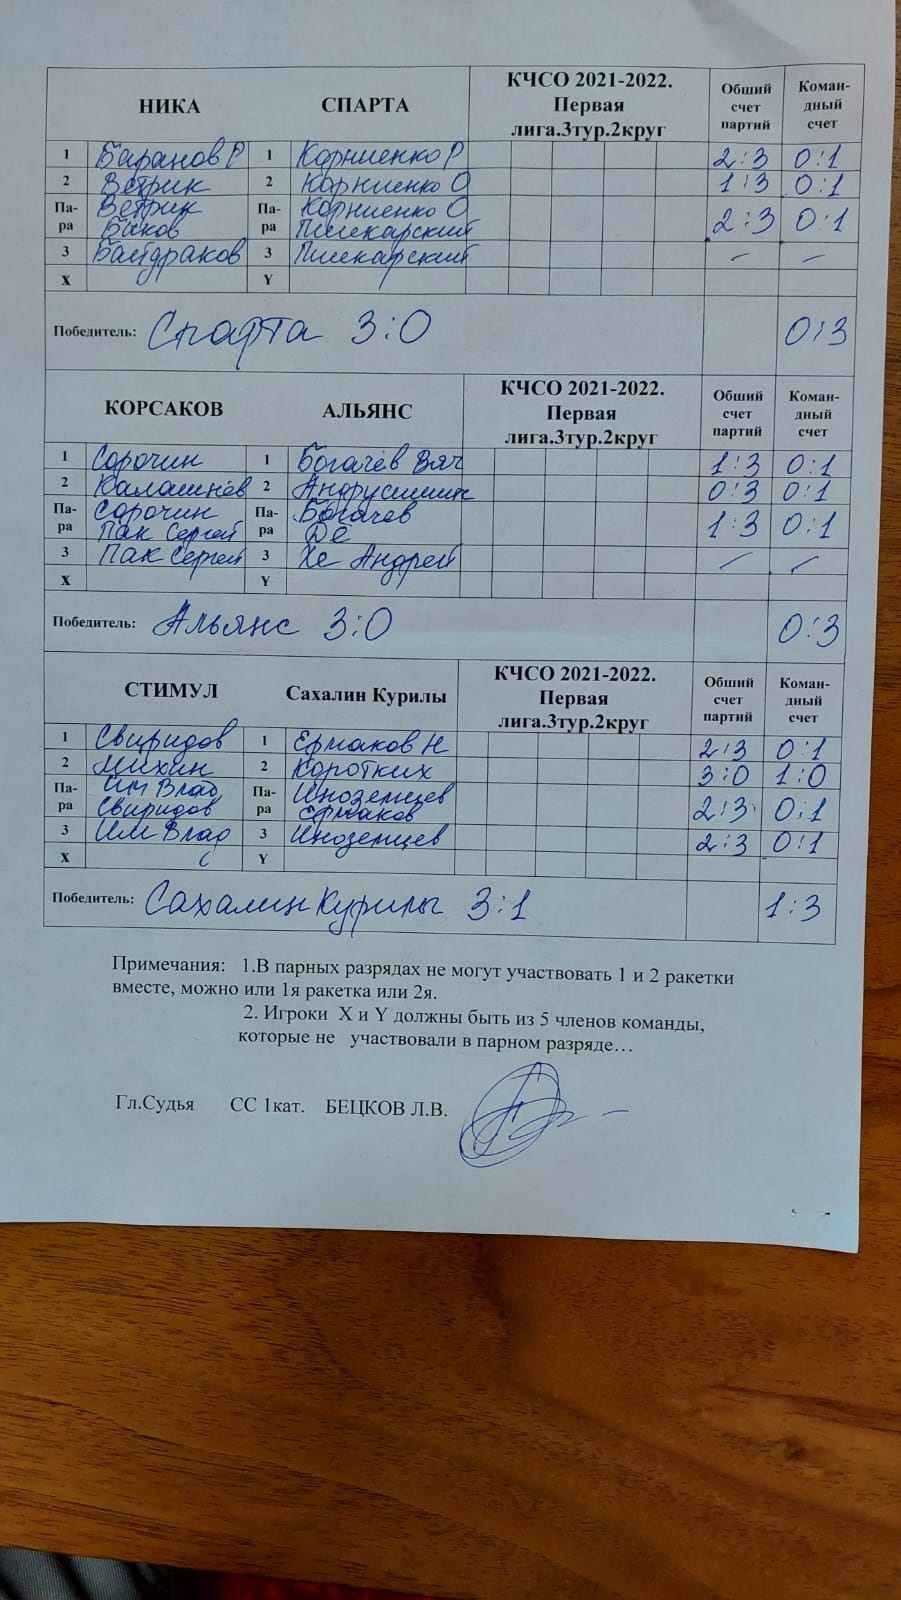 НИКА СПАРТА КЧСО 2021-2022. Первая лига.3тур.2круг Обший счет партий Коман-дный счет
1 Баранов Р 1 Корниенко Р 2:3 0:1
2 Ветрик 2 Корниенко О 1:3 0:1
Па-ра Ветрик Па-ра Корниенко О 2:3 0:1
Быков Пшекарский
3 Байдраков 3 Пшекарский – –
X Y
Победитель: Спарта 3:0 0:3
КОРСАКОВ АЛЬЯНС КЧСО 2021-2022. Первая лига.3тур.2круг Обший счет партий Коман-дный счет
1 Сорочин 1 Богачёв Вяч 1:3 0:1
2 Калашнёв 2 0:3 0:1
Па-ра Сорочин Па-ра Богачев 1:3 0:1
Пак Сергей Де
3 Пак Сергей 3 Хе Андрей – –
X Y
Победитель: Альянс 3:0 0:3
СТИМУЛ Сахалин Курилы КЧСО 2021-2022. Первая лига.3тур.2круг Обший счет партий Коман-дный счет
1 Свиридов 1 Ермаков Н 2:3 0:1
2 Михин 2 Коротких 3:0 1:0
Па-ра Им Влад Па-ра Иноземцев 2:3 0:1
Свиридов Ермаков
3 Им Влад 3 Иноземцев 2:3 0:1
X Y
Победитель: Сахалин Курилы 3:1 1:3
Примечания: 1.В парных разрядах не могут участвовать 1 и 2 ракетки
вместе, можно или 1я ракетка или 2я.
2. Игроки X и Y должны быть из 5 членов команды,
которые не участвовали в парном разряде…
Гл.Судья СС 1кат. БЕЦКОВ Л.В.